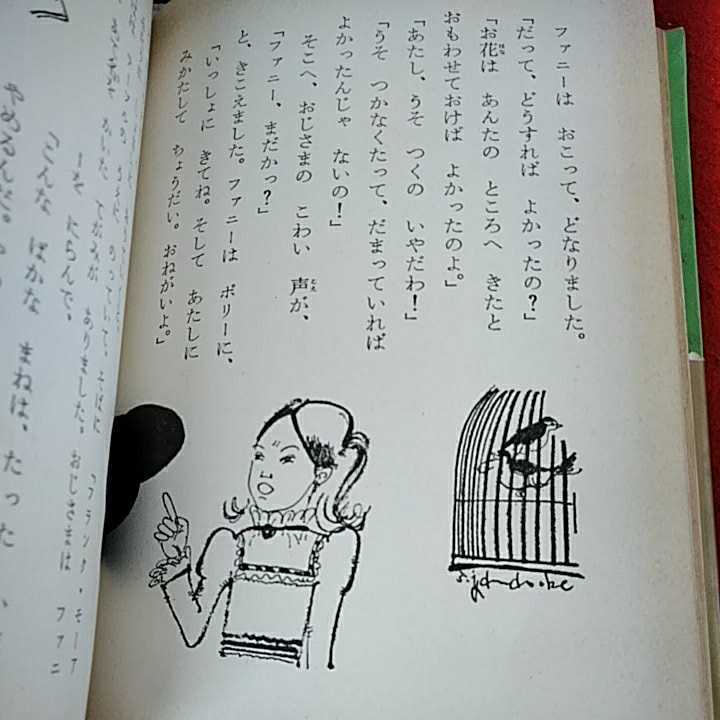 ファニーは おこって、どなりました。
「だって、どうすれば よかったの？」
「お花は あんたの ところへ きたと
おもわせておけば よかったのよ。」
「あたし、うそ つくの いやだわ！」
「うそ つかなくたって、だまっていれば
よかったんじゃ ないの！」
そこへ、おじさまの こわい 声が、
「ファニー、まだかっ？」
と、きこえました。ファニーは ポリーに、
「いっしょに きてね。そして あたしに
みかたして ちょうだい。おねがいよ。」
フランク・モーア
のっていて、そばに
かいた てがみが ありました。おじさまは ファニ
ーを にらんで、
「こんな ばかな まねは、たった
やめるんだ。